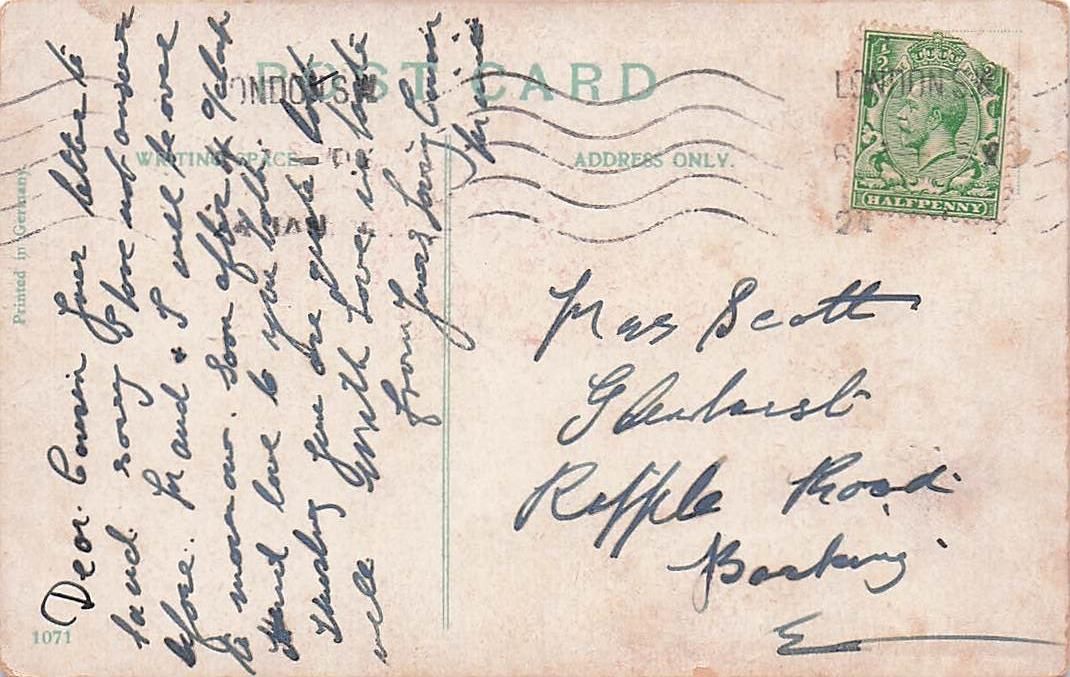 POST CARD
WRITING SPACE
ADDRESS ONLY.
Printed in Germany.
1071
LONDON S.W
JAN
LONDON S.W
24
HALFPENNY
Dear Cousin Your letter to
hand sorry I have not answer
before. M and & I will be over
to morrow. Soon after
Send love to you both
Thinking you are quite
well With Love in haste
from Yours Loving Cousin
Mrs Scott
Glenhurst
Ripple Road.
Barking.
E